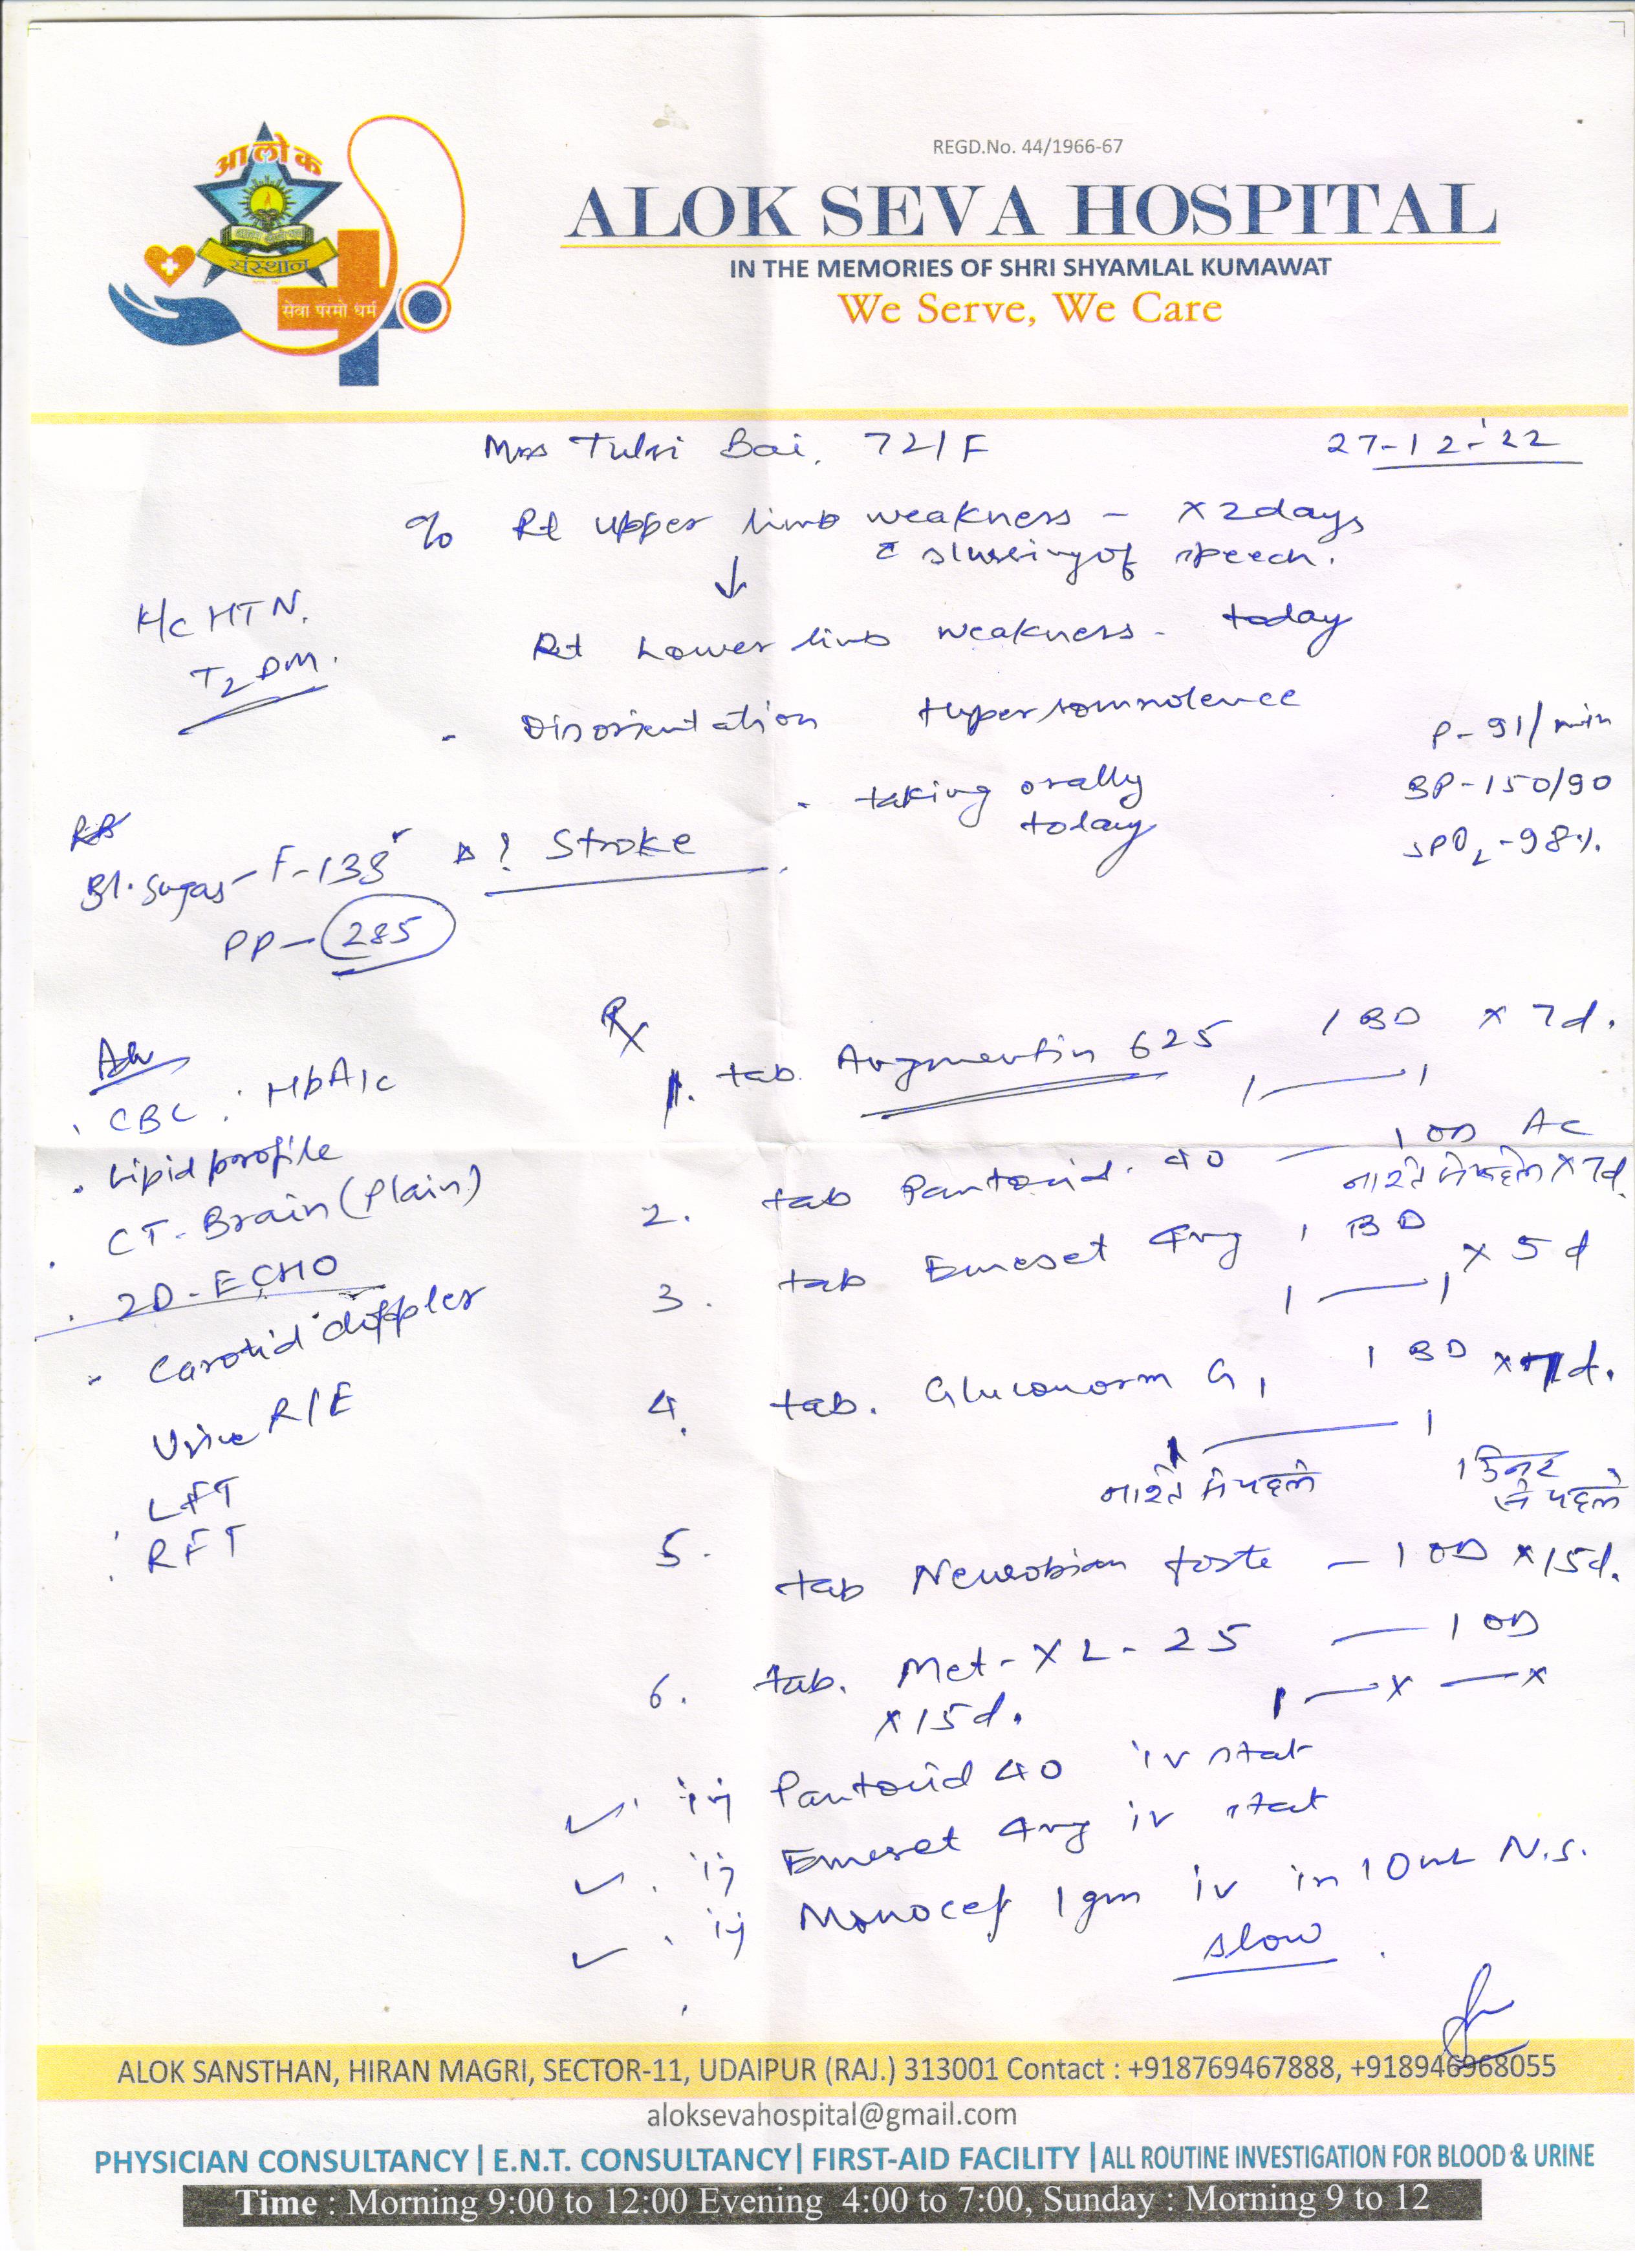 आलोक
संस्थान
सेवा परमो धर्म
REGD.No. 44/1966-67
ALOK SEVA HOSPITAL
IN THE MEMORIES OF SHRI SHYAMLAL KUMAWAT
We Serve, We Care
Mrs Tulsi Bai. 72/F
27-12-'22
c/o Rt upper limb weakness - x 2days
c̄ slurring of speech.
↓
K/c HTN.
T2DM.
Rt Lower limb weakness - today
- Disorientation Hypersomnolence
- taking orally today
P-91/min
BP-150/90
SPO2-98%.
Bl. sugar - F-138
PP-285
∆ ? Stroke
Adv
. CBC . HbA1c
. Lipid profile
. CT-Brain (Plain)
. 2D-ECHO
- Carotid doppler
Urine R/E
. LFT
. RFT
Rx
1. tab. Augmentin 625 1 BD x 7d.
1 — 1
2. tab Pantocid. 40 — 1 OD AC
नाश्ते से पहले x 7d.
3. tab Emeset 4mg 1 BD x 5d
1 — 1
4. tab. Gluconorm G1 1 BD x 7d.
1 — 1
नाश्ते से पहले 1 डिनर से पहले
5. tab Neurobian forte - 1 OD x 15d.
6. tab. Met-XL-25 — 1 OD
x 15d. 1 — x — x
✓. inj Pantocid 40 iv stat
✓. inj Emeset 4mg iv stat
✓. inj Monocef 1gm iv in 10ml N.S.
slow
ALOK SANSTHAN, HIRAN MAGRI, SECTOR-11, UDAIPUR (RAJ.) 313001 Contact : +918769467888, +918946968055
aloksevahospital@gmail.com
PHYSICIAN CONSULTANCY | E.N.T. CONSULTANCY | FIRST-AID FACILITY | ALL ROUTINE INVESTIGATION FOR BLOOD & URINE
Time : Morning 9:00 to 12:00 Evening 4:00 to 7:00, Sunday : Morning 9 to 12